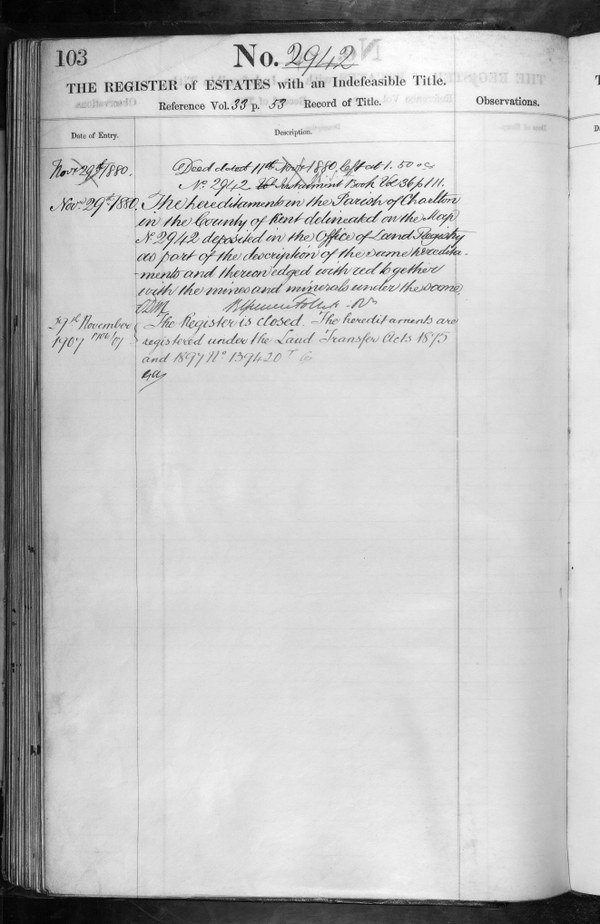 103
No. 2942
THE REGISTER of ESTATES with an Indefeasible Title.
Reference Vol. 33 p. 53 Record of Title.
Observations.
Date of Entry.
Description.
Novr 29th 1880.
Deed dated 11th Novr 1880, left at 1.50 o'c
No. 2942 Instrument Book Vol 36 p 111.
Novr 29th 1880.
The hereditaments in the Parish of Charlton
in the County of Kent delineated on the Map
No. 2942 deposited in the Office of Land Registry
as part of the description of the same heredita-
-ments and thereon edged with red together
with the mines and minerals under the same.
29th November
1907
The Register is closed. The hereditaments are
registered under the Land Transfer Acts 1875
and 1897 No 139420